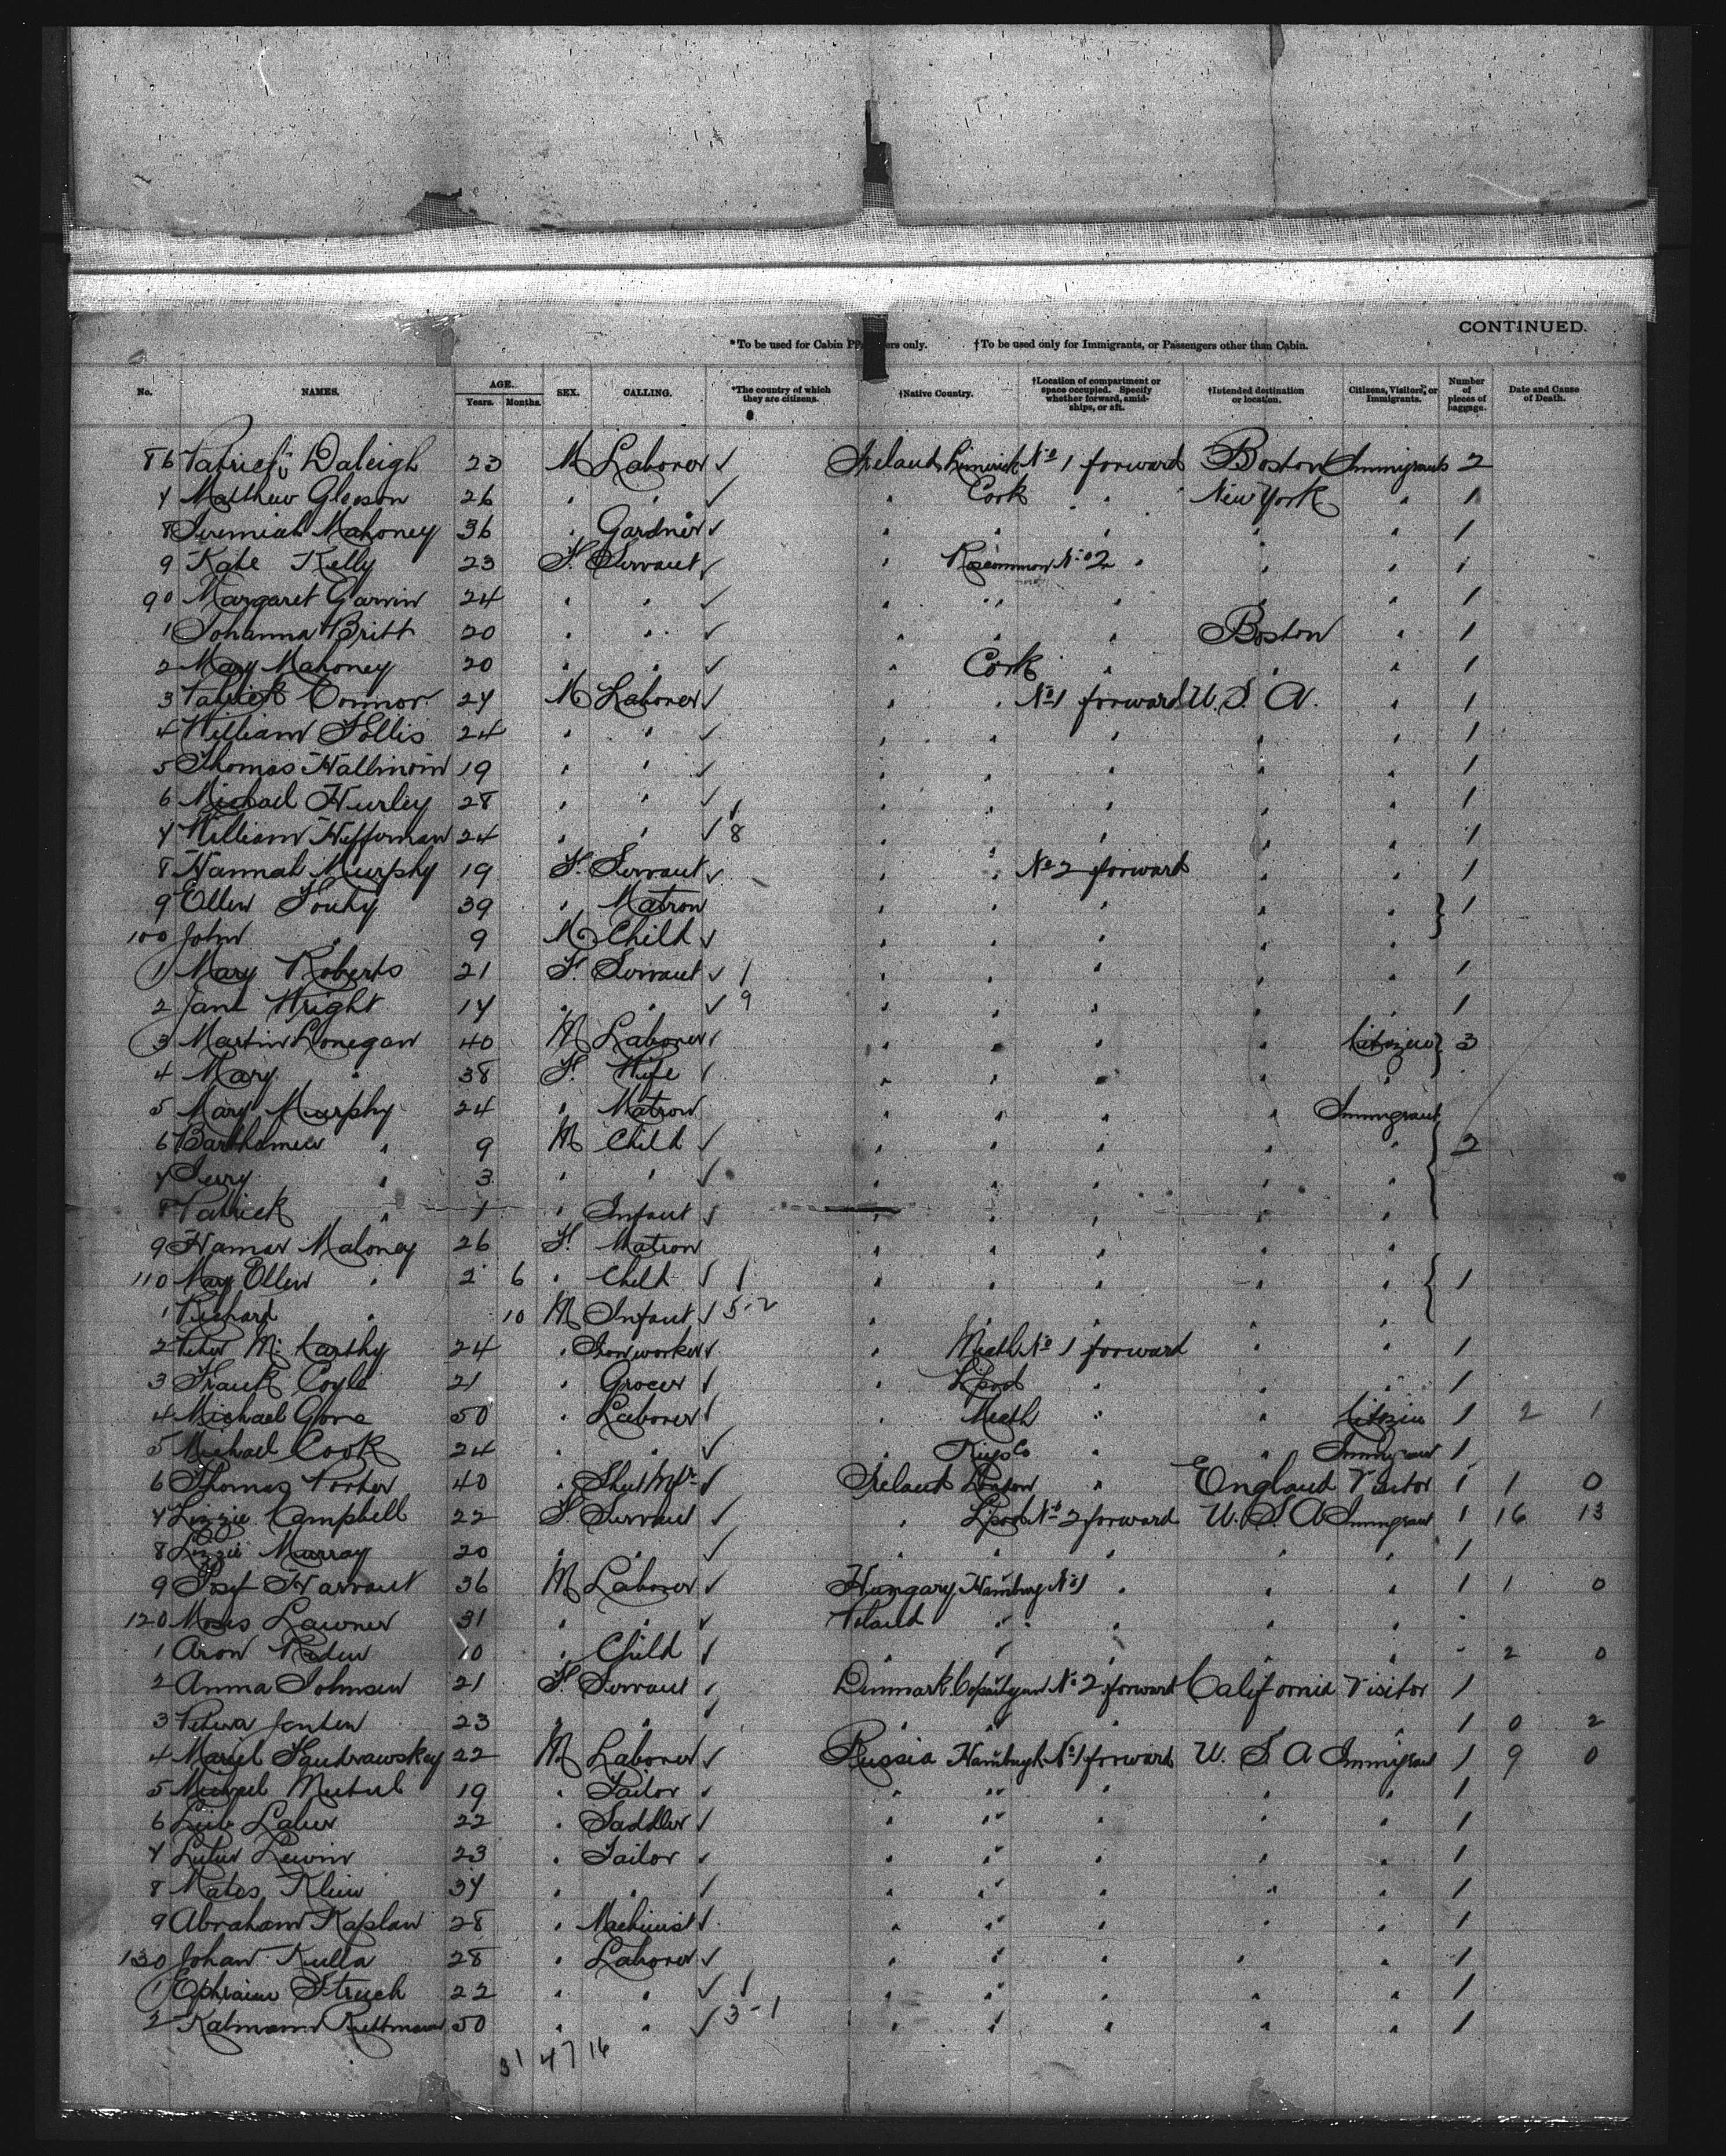 CONTINUED.
*To be used for Cabin P ers only. †To be used only for Immigrants, or Passengers other than Cabin.
No. NAMES. AGE. Years. Months. SEX. CALLING. *The country of which they are citizens. †Native Country. †Location of compartment or space occupied. Specify whether forward, amidships, or aft. †Intended destination or location. Citizens, Visitors, or Immigrants. Number of pieces of baggage. Date and Cause of Death.
86 Patrick Daleigh 23 M Laborer ✓ Ireland Limerick No 1 forward Boston Immigrants 2
7 Matthew Gleeson 26 " " ✓ " Cork " New York " 1
8 Jeremiah Mahoney 36 " Gardner ✓ " " " " " 1
9 Kate Kelly 23 F. Servant ✓ " Roscommon No 2 " " " 1
90 Margaret Garvin 24 " " ✓ " " " " " 1
1 Johanna Britt 20 " " ✓ " " " Boston " 1
2 Mary Mahoney 20 " " ✓ " Cork " " " 1
3 Patrick Connor 27 M Laborer ✓ " " No 1 forward U. S. A. " 1
4 William Follis 24 " " ✓ " " " " " 1
5 Thomas 19 " " ✓ " " " " " 1
6 Michael Hurley 28 " " ✓ " " " " " 1
7 William Heffernan 24 " " ✓ 8 " " " " " 1
8 Hannah Murphy 19 F. Servant ✓ " " No 2 forward " " 1
9 Ellen 39 " Matron " " " " " 1
100 John " 9 M Child ✓ " " " " "
1 Mary Roberts 21 F. Servant ✓ 1 " " " " " 1
2 Jane Wright 17 " " ✓ 9 " " " " " 1
3 Martin Lonegan 40 M Laborer ✓ " " " " Citizen 3
4 Mary " 38 F. Wife ✓ " " " " "
5 Mary Murphy 24 " Matron " " " " Immigrant
6 Barthomew " 9 M Child ✓ " " " " " 2
7 " 3 " " ✓ " " " " "
8 Patrick " 1 " Infant ✓ " " " " "
9 Maloney 26 F. Matron " " " " "
110 Mary Ellen " 2 6 " Child ✓ 1 " " " " " 1
1 Richard " 10 M Infant ✓ 5-2 " " " " "
2 Peter McCarthy 24 " Ironworker ✓ " Meath No 1 forward " " 1
3 Frank Coyle 21 " Grocer ✓ " Lpool " " " 1
4 Michael Gore 50 " Laborer ✓ " Meath " " Citizen 1 2 1
5 Michael Cook 24 " " ✓ " Kings Co " " Immigrant 1
6 Thomas Porter 40 " ✓ Ireland " England Visitor 1 1 0
7 Lizzie Campbell 22 F. Servant ✓ " Lpool No 2 forward U. S. A Immigrant 1 16 13
8 Lizzie Murray 20 " " ✓ " " " " " 1
9 Josef 36 M Laborer ✓ Hungary Hamburg No 1 " " " 1 1 0
120 Moses Lawner 31 " " ✓ Poland " " " " "
1 Aron 10 " Child ✓ " " " " " - 2 0
2 Anna Johnsen 21 F. Servant ✓ Denmark No 2 forward California Visitor 1
3 23 " " ✓ " " " " " 1 0 2
4 22 M Laborer ✓ Russia Hamburgh No 1 forward U. S. A Immigrant 1 9 0
5 19 " Tailor ✓ " " " " " 1
6 22 " Saddler ✓ " " " " " 1
7 Lewin 23 " Tailor ✓ " " " " " 1
8 Mates Klein 37 " " ✓ " " " " " 1
9 Abraham Kaplan 28 " Machinist ✓ " " " " " 1
130 Johan Kulla 28 " Laborer ✓ " " " " " 1
1 Ephraim 22 " " ✓ 1 " " " " " 1
2 Kalmann 50 " " ✓ 3-1 " " " " " 1
31 47 16